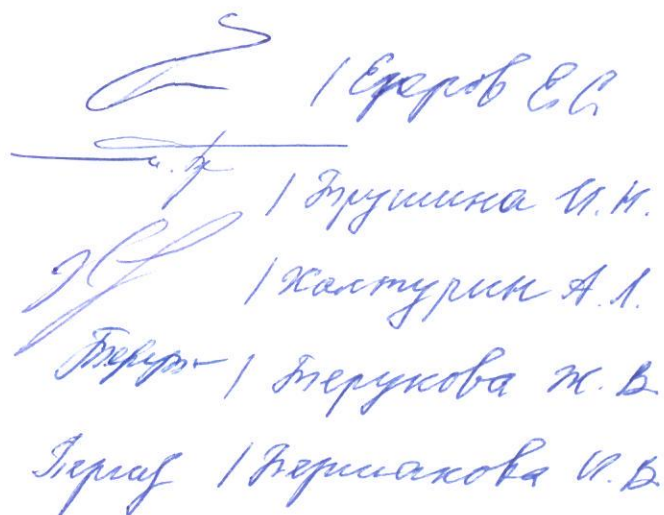 / Егоров Е.С.
/ Трушина И.Н.
/ Халтурин А.Л.
/ Терукова Ж.В.
/ Пермякова И.В.